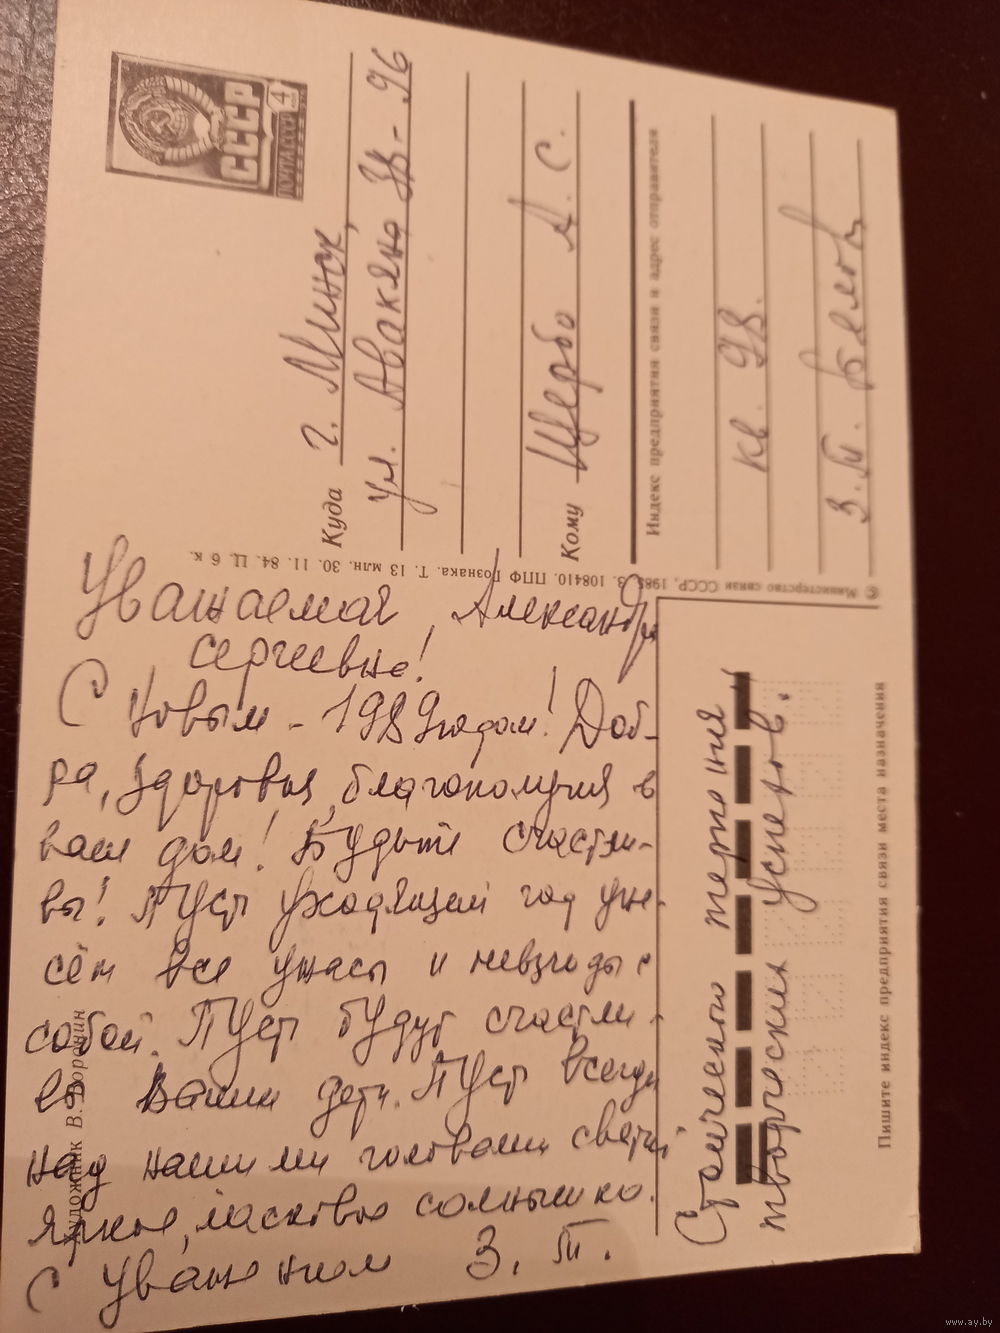 СССР
ПОЧТА СССР
4
Куда г. Минск,
ул. Авакяна 38 - 96
Кому Щербо А. С.
Индекс предприятия связи и адрес отправителя
кв. 98.
З. П.
© Министерство связи СССР, 1985. З. 108410. ППФ Гознака. Т. 13 млн. 30. 11. 84. Ц. 6 к.
Художник В. Воронин
Уважаемая Александра
Сергеевна!
С Новым - 1989 годом! Доб-
ра, здоровья, благополучия в
ваш дом! Будьте счастли-
вы! Пусть уходящий год уне-
сёт все ужасы и невзгоды с
собой. Пусть будут счастли-
вы Ваши дети. Пусть всегда
над нашими головами светит
яркое, ласковое солнышко.
С уважением З. П.
терпения
творческих успехов.
Пишите индекс предприятия связи места назначения
www.ay.by